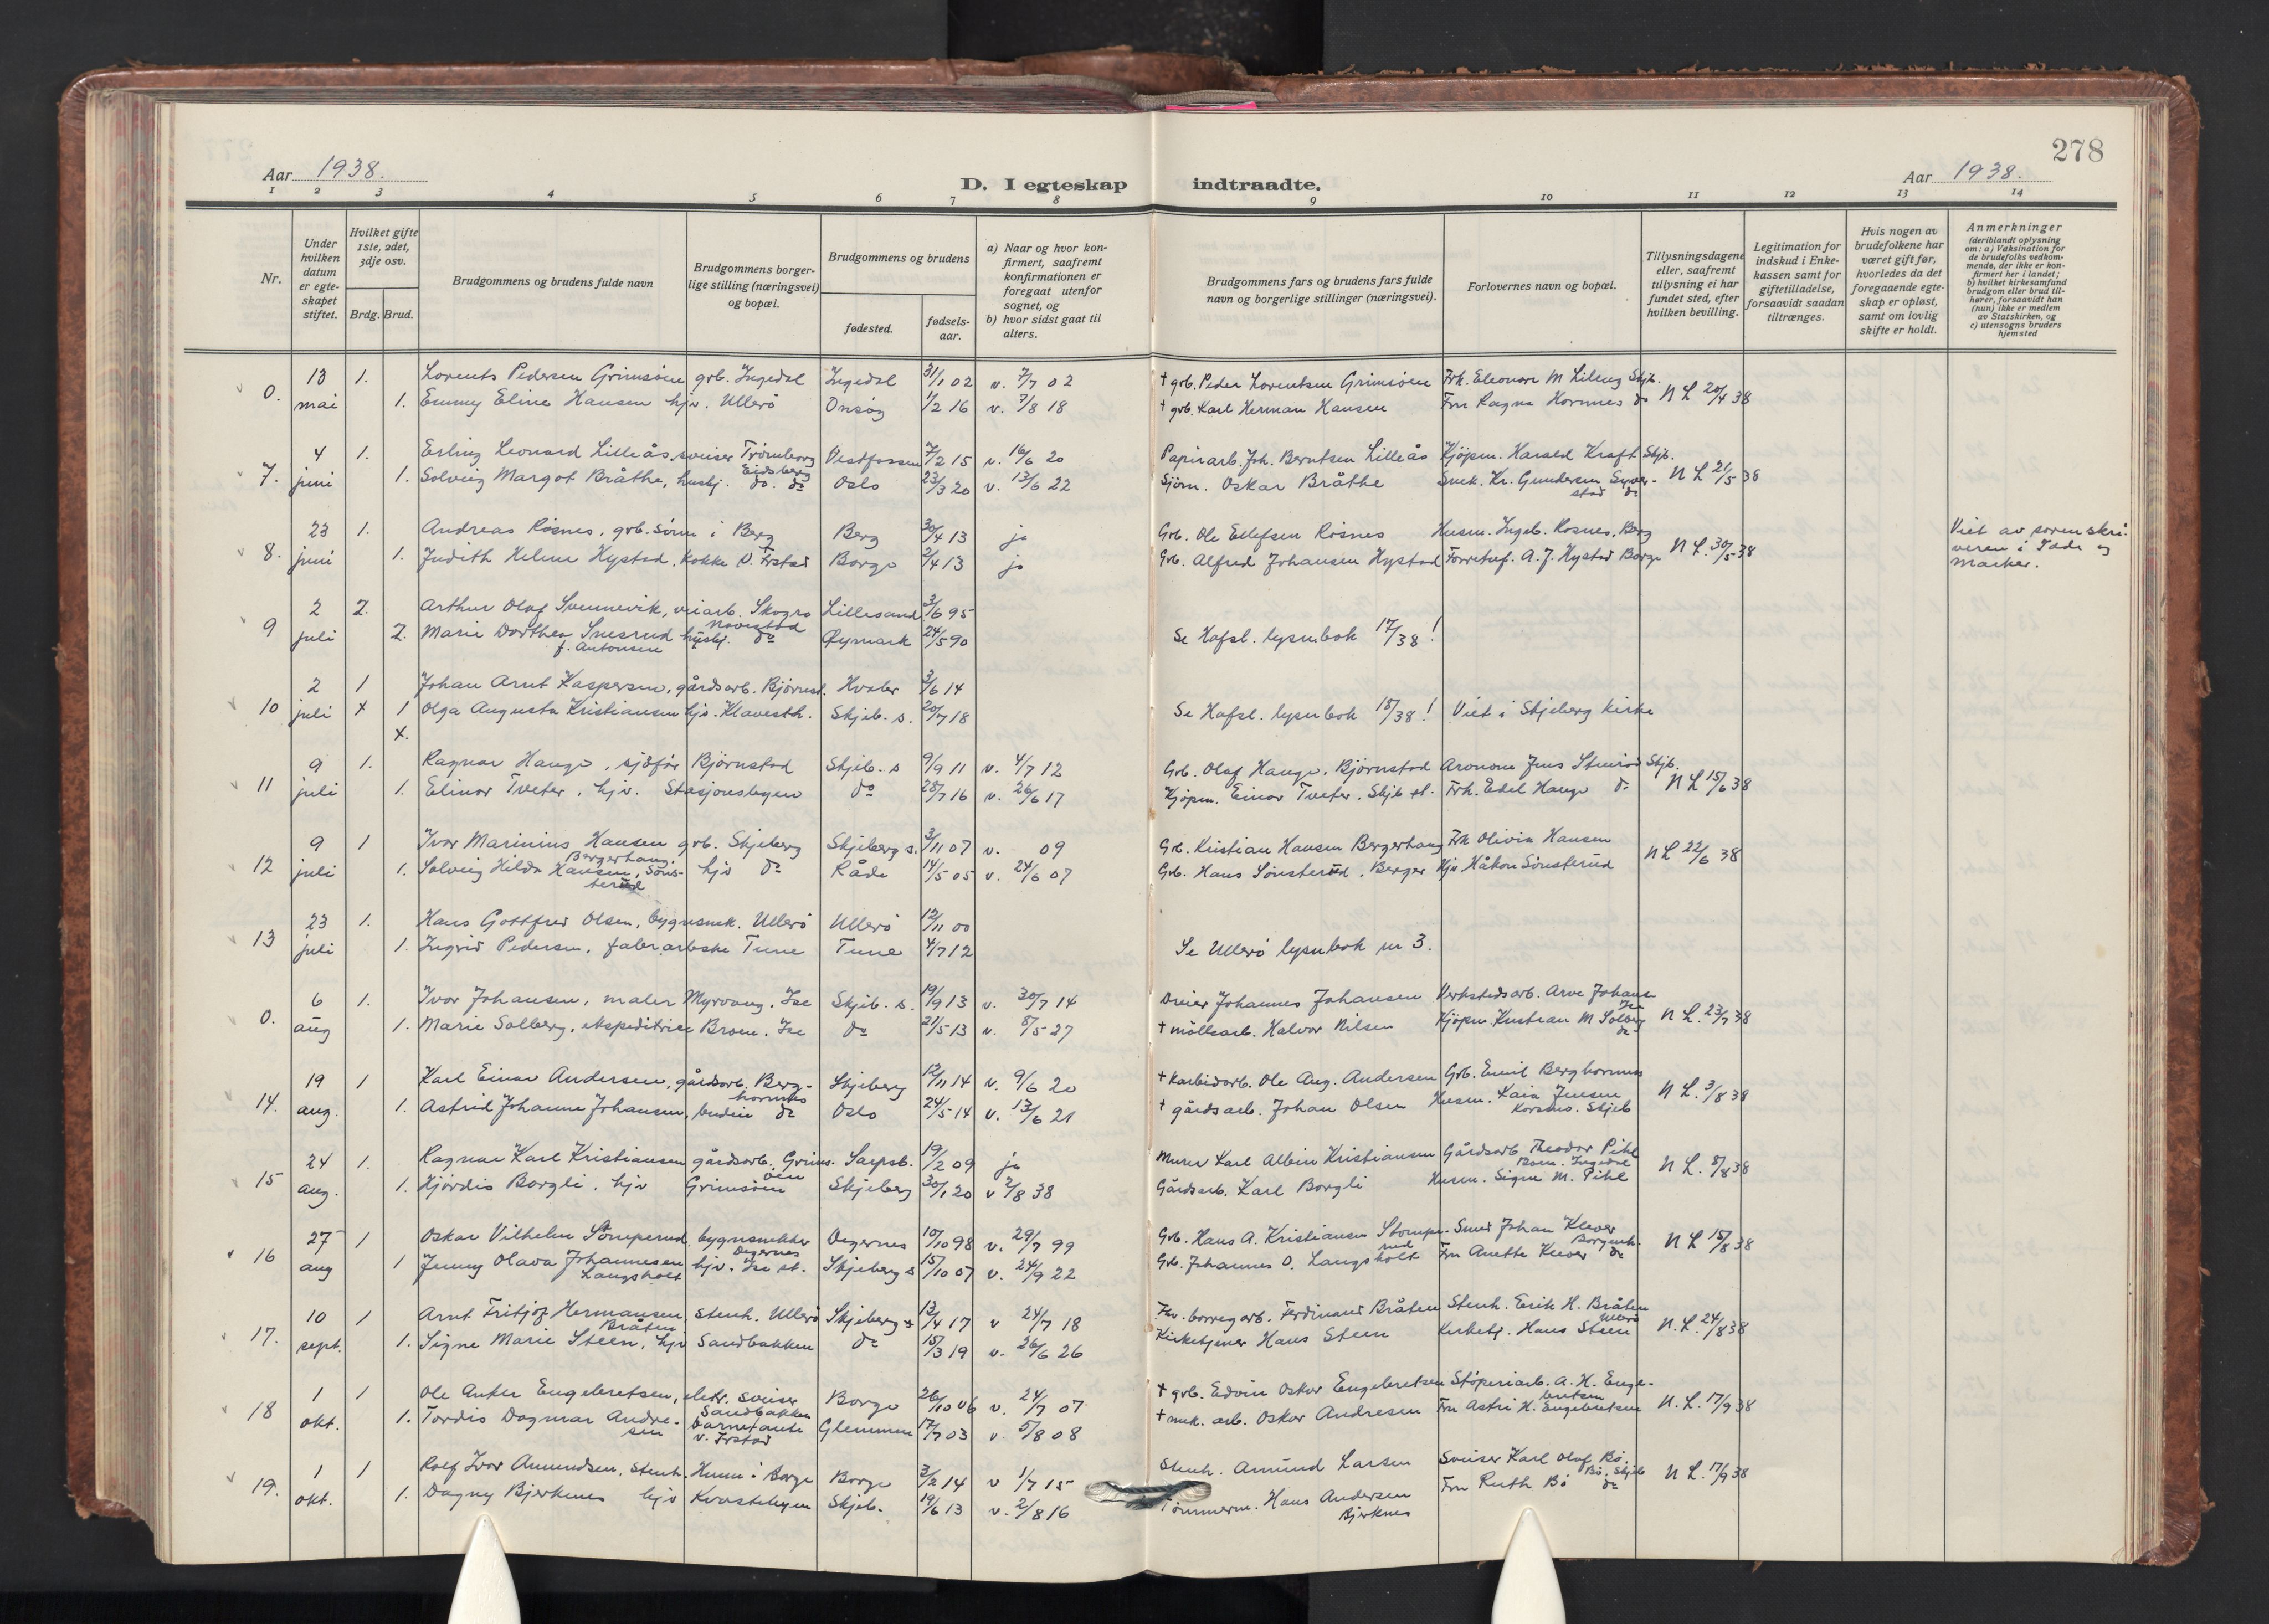 278
Aar 1938.
D. I egteskap indtraadte.
Aar 1938.
1 2 3 4 5 6 7 8 9 10 11 12 13 14
Nr.
Under hvilken datum er egteskapet stiftet.
Hvilket gifte 1ste, 2det, 3dje osv.
Brdg. Brud.
Brudgommens og brudens fulde navn
Brudgommens borgerlige stilling (næringsvei) og bopæl.
Brudgommens og brudens
fødested.
fødselsaar.
a) Naar og hvor konfirmert, saafremt konfirmationen er foregaat utenfor sognet, og
b) hvor sidst gaat til alters.
Brudgommens fars og brudens fars fulde navn og borgerlige stillinger (næringsvei).
Forlovernes navn og bopæl.
Tillysningsdagene eller, saafremt tillysning ei har fundet sted, efter hvilken bevilling.
Legitimation for indskud i Enkekassen samt for giftetilladelse, forsaavidt saadan tiltrænges.
Hvis nogen av brudefolkene har været gift før, hvorledes da det foregaaende egteskap er opløst, samt om lovlig skifte er holdt.
Anmerkninger
(deriblandt oplysning om: a) Vaksination for de brudefolks vedkommende, der ikke er konfirmert her i landet; b) hvilket kirkesamfund brudgom eller brud tilhører, forsaavidt han (hun) ikke er medlem av Statskirken, og c) utensogns bruders hjemsted
0. 13 mai 1. Lorents Pedersen Grimsöen grb. Ingedal Ingedal 31/1 02 v. 7/7 02 † grb. Peder Lorentsen Grimsöen Frk. Eleonore M Lileng Skjb. N L 20/4 38
1. Emmy Eline Hansen hjv. Ullerö Onsøy 1/2 16 v. 7/8 18 † grb. Karl Herman Hansen Fru Ragna Hornnes do
7. 4 juni 1. Erling Leonard Lilleås, sveiser Trömborg Eidsberg Vestfossen 7/2 15 v. 16/6 20 Papirarb. Joh. Berntsen Lilleås Kjöpm. Harald Kraft Skjb. N L 21/5 38
1. Solveig Margot Bråthe, husbj. do. do Oslo 23/3 20 v. 13/6 22 Sjöm. Oskar Bråthe Snek. Kr. Gundersen do
8. 23 juni 1. Andreas Rösnes, grb. sönn i Berg Berg 30/4 13 ja Grb. Ole Ellefsen Rösnes Husm. Ingeb. Rosnes, Berg N L. 30/5 38 Viet av sorenskriveren i Idde og Marker.
1. Judith Helene Hystad, kokke Ö. Frstad Borge 2/4 13 ja Grb. Alfred Johansen Hystad Forretnf. A. J. Hystad Borge
9 2 juli 2. Arthur Olaf Svennevik, veiarb. Skogro Navestad Lillesand 3/6 95 Se Hafsl. lysnbok 17/38!
2. Marie Dorthea Snesrud f. Antonsen husbj. do Öymark 24/5 90
10 2 juli 1 x Johan Arnt Kaspersen, gårdsarb. Bjørnst. Hvaler 3/6 14 Se Hafsl. lysnbok 18/38! Viet i Skjeberg kirke
1 x. Olga Augusta Kristiansen hjv. Klavesth. Skjeb. s. 20/7 18
11 9 juli 1. Ragnar Hauge, sjåfør Björnstad Skjeb. s 9/9 11 v. 4/7 12 Grb. Olaf Hauge, Björnstad Aronom Jens Stenrød Skjb. N L 15/6 38
1. Elinor Tveter, hjv. Stasjonsbyen do 28/7 16 v. 26/6 17 Kjöpm. Einar Tveter. Skjb st. Frk. Edel Hauge do
12 9 juli 1 Ivar Marinius Hansen Bergerhaug grb. Skjeberg Skjeberg s. 3/11 07 v. 09 Grb. Kristian Hansen Bergerhaug Frk Olivia Hansen N L 22/6 38
1. Solveig Hilda Hansen, Sönsterud hjv do Råde 14/5 05 v. 24/6 07 Grb. Hans Sönsterud, Berger Hjv Håkon Sönsterud
13 23 juli 1. Hans Gottfred Olsen, bygnsnek. Ullerö Ullerö 12/11 00 Se Ullerö lysnbok nr 3.
1. Ingrid Pedersen, fabr.arbeske Tune Tune 4/7 12
0. 6 aug 1. Ivar Johansen, maler Myrvang. Ise Skjeb. s. 19/9 13 v. 30/7 14 Dreier Johannes Johansen Verkstedsarb. Arve Johans. Ise N L. 23/7 38
1. Marie Solberg, ekspeditrise Broen. Ise do 21/5 13 v. 8/5 27 † möllearb. Halvor Nilsen Kjöpm. Kristian M Solberg do
14. 19 aug. 1 Karl Einar Andersen, gårdsarb. Berghornnes Skjeberg 12/11 14 v. 9/6 20 † Karbidarb. Ole Aug. Andersen Grb. Emil Berghornnes N L. 3/8 38
1. Astrid Johanne Johansen, budeie do Oslo 24/5 14 v. 13/6 21 † gårdsarb. Johan Olsen Husm. Kaia Jensen Korsmo. Skjeb
15 24 aug. 1. Ragnar Karl Kristiansen gårdsarb. Grimsöen Sarpsb. 19/2 09 ja Murer Karl Albin Kristiansen Gårdsarb Theodor Pihl Ingedal N L. 8/8 38
1. Hjördis Borgli, hjv Grimsöen Skjeberg 30/1 20 v 2/8 38 Gårdsarb. Karl Borgli Husm. Signe M. Pihl
16 27 aug 1 Oskar Vilhelm Stomperud bygnsnekker Degernes Degernes 10/10 98 v. 29/7 99 Grb. Hans A. Kristiansen Stomperud Smed Johan Klever Borgenh. N L 15/8 38
1 Jenny Olava Johannesen Langsholt hjv. Ise st. Skjeberg s 15/10 07 v. 24/9 22 Grb. Johannes O. Langsholt Fru Anette Klever do
17. 10 sept. 1 Arnt Fritjof Hermansen Bråten stenh. Ullerö Skjeberg s 13/4 17 v 24/7 18 Fhv. borregarb. Ferdinand Bråten Stenh. Erik H. Bråten N. L. 24/8 38
1. Signe Marie Steen, hjv Sandbakken do 15/3 19 v. 26/6 26 Kirketjener Hans Steen Kirketj. Hans Steen
18 1 okt. 1 Ole Anker Engebretsen, elektr. sveiser Sandbakken Borge 26/10 06 v. 24/7 07 † grb. Edvin Oskar Engebretsen Støperiarb. A. H. Engebretsen N. L. 17/9 38
1. Tordis Dagmar Andresen barnetante v. Frstad Glemmen 17/7 03 v. 5/8 08 † mek. arb. Oskar Andresen Fru Astri H. Engebretsen
19. 1 okt. 1 Rolf Ivar Amundsen, stenh. Hunn i Borge Borge 3/2 14 v 1/7 15 Stenh. Amund Larsen Sveiser Karl Olaf Bö, Bö, Skjeb N L. 17/9 38
1. Dagny Bjerknes hjv Kvastebyen Skjeb. 19/6 13 v. 2/8 16 Tömmerm. Hans Andersen Bjerknes Fru Ruth Bö do